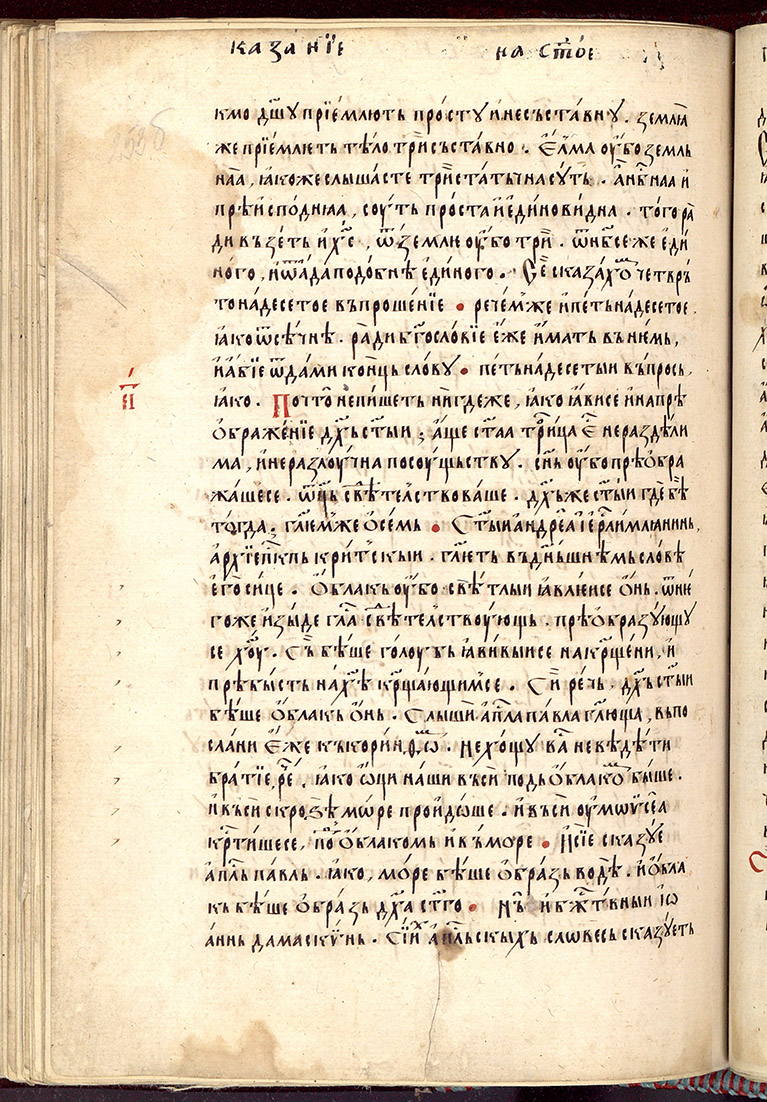 казанїе на ст҃ое
кмо дш҃у прїе́млють про́сту и несъста́вну . землꙗ
же прїе́млеть тѣ́ло трисъста́вно . Е҆лма оу҆́бо земль
наа , ꙗкоже слы́шасте тристаты́чна су́ть . а҆нг҃лнаа и҆
прѣи҆спо́днꙗа , соу́ть про́ста и҆ е҆ди́нови́дна . того ра́
ди въ зе́ть и҆ хс҃ , ѿ землѥ оу҆́бо три . ѿ нбс҃е же е҆ди́
ного , и҆ ѿ а́да подо́бнѣ е҆ди́ного . Се́ сказа́хѡⷨ четврь
тона́десетое въпроше́нїе . рече́мже и҆ петьна́десетое .
ꙗко ѿсѣ́чнѣ . ра́ди бг҃осло́вїе е҆́же и҆́мать въ не́мь ,
и҆ а҆́бїе ѿда́ми коне́ць сло́ву . петьна́десетыи въпро́сь ,
е҃і
ꙗко . Почто не пи́шеть ни́гдеже , ꙗко ꙗ҆ви се и҆ на прѣ
ѡ҆браже́нїе дх҃ь ст҃ыи ; а҆́ще ст҃аа трⷪ҇ица є҆ⷭ҇ нераздѣ́ли
ма , и҆ неразлоу́чна по соущьству́ . сн҃ь оу҆́бо прѣѡ҆бра
жа́шесе . ѿц҃ь свѣ́телствова́ше . дх҃ь же ст҃ыи где бѣ́
тогда ; гл҃ем же ѡ҆ се́мь . Ст҃ыи а҆ндре́а і҆ерⷭ҇ли́млꙗнинь ,
а҆рхїепⷭ҇кпь кри́тскыи . гл҃еть въ дн҃ьшиѣмь сло́вѣ
е҆го си́це . Ѡ҆́блакь оу҆́бо свѣ́тлыи ꙗвле́и се ѡ҆́нь . ѿ нѥ
гоже и҆зы́де гла́ⷭ свѣ́телствоу́ющь . прѣѡ҆бразу́ющу
се хс҃оу . Съ бѣ́ше го́лоубь ꙗви́выи се на крⷭ҇щени , и҆
прѣбы́сть на хс҃ѣ крⷭ҇ща́ющимсе . Си́ рѣ́чь . дх҃ь ст҃ыи
бѣ́ше ѡ҆́блакь ѡ҆́нь . Слы́ши а҆пⷭ҇ла па́вла гл҃юща , въ по
сла́ни е҆́же къ кори́нѳѡⷨ . Не хо́щу ва́ⷭ не вѣ́дѣти
бра́тїе , рⷱ҇е . ꙗко ѡ҆ци на́ши въси поⷣ ѡ҆́блакоⷨ бы́ше .
и҆ въси скро́зѣ мо́ре проидо́ше . и҆ въси оу҆ мѡѷсе́а
крⷭ҇ти́шесе , поⷣ ѡ҆́блакомь и҆ въ мо́ре . И҆ сїе ска́зуе
а҆пⷭ҇ль па́вль . ꙗко , мо́ре бѣ́ше ѡ҆́бразь водѣ . и҆ ѡ҆́бла
кь бѣ́ше ѡ҆́бразь дх҃а ст҃го . Нь и҆ бжⷭ҇твныи і҆ѡ
а́ннь дамаски́нь . Сїи а҆пⷭ҇льскыхь слове́сь сказу́еть